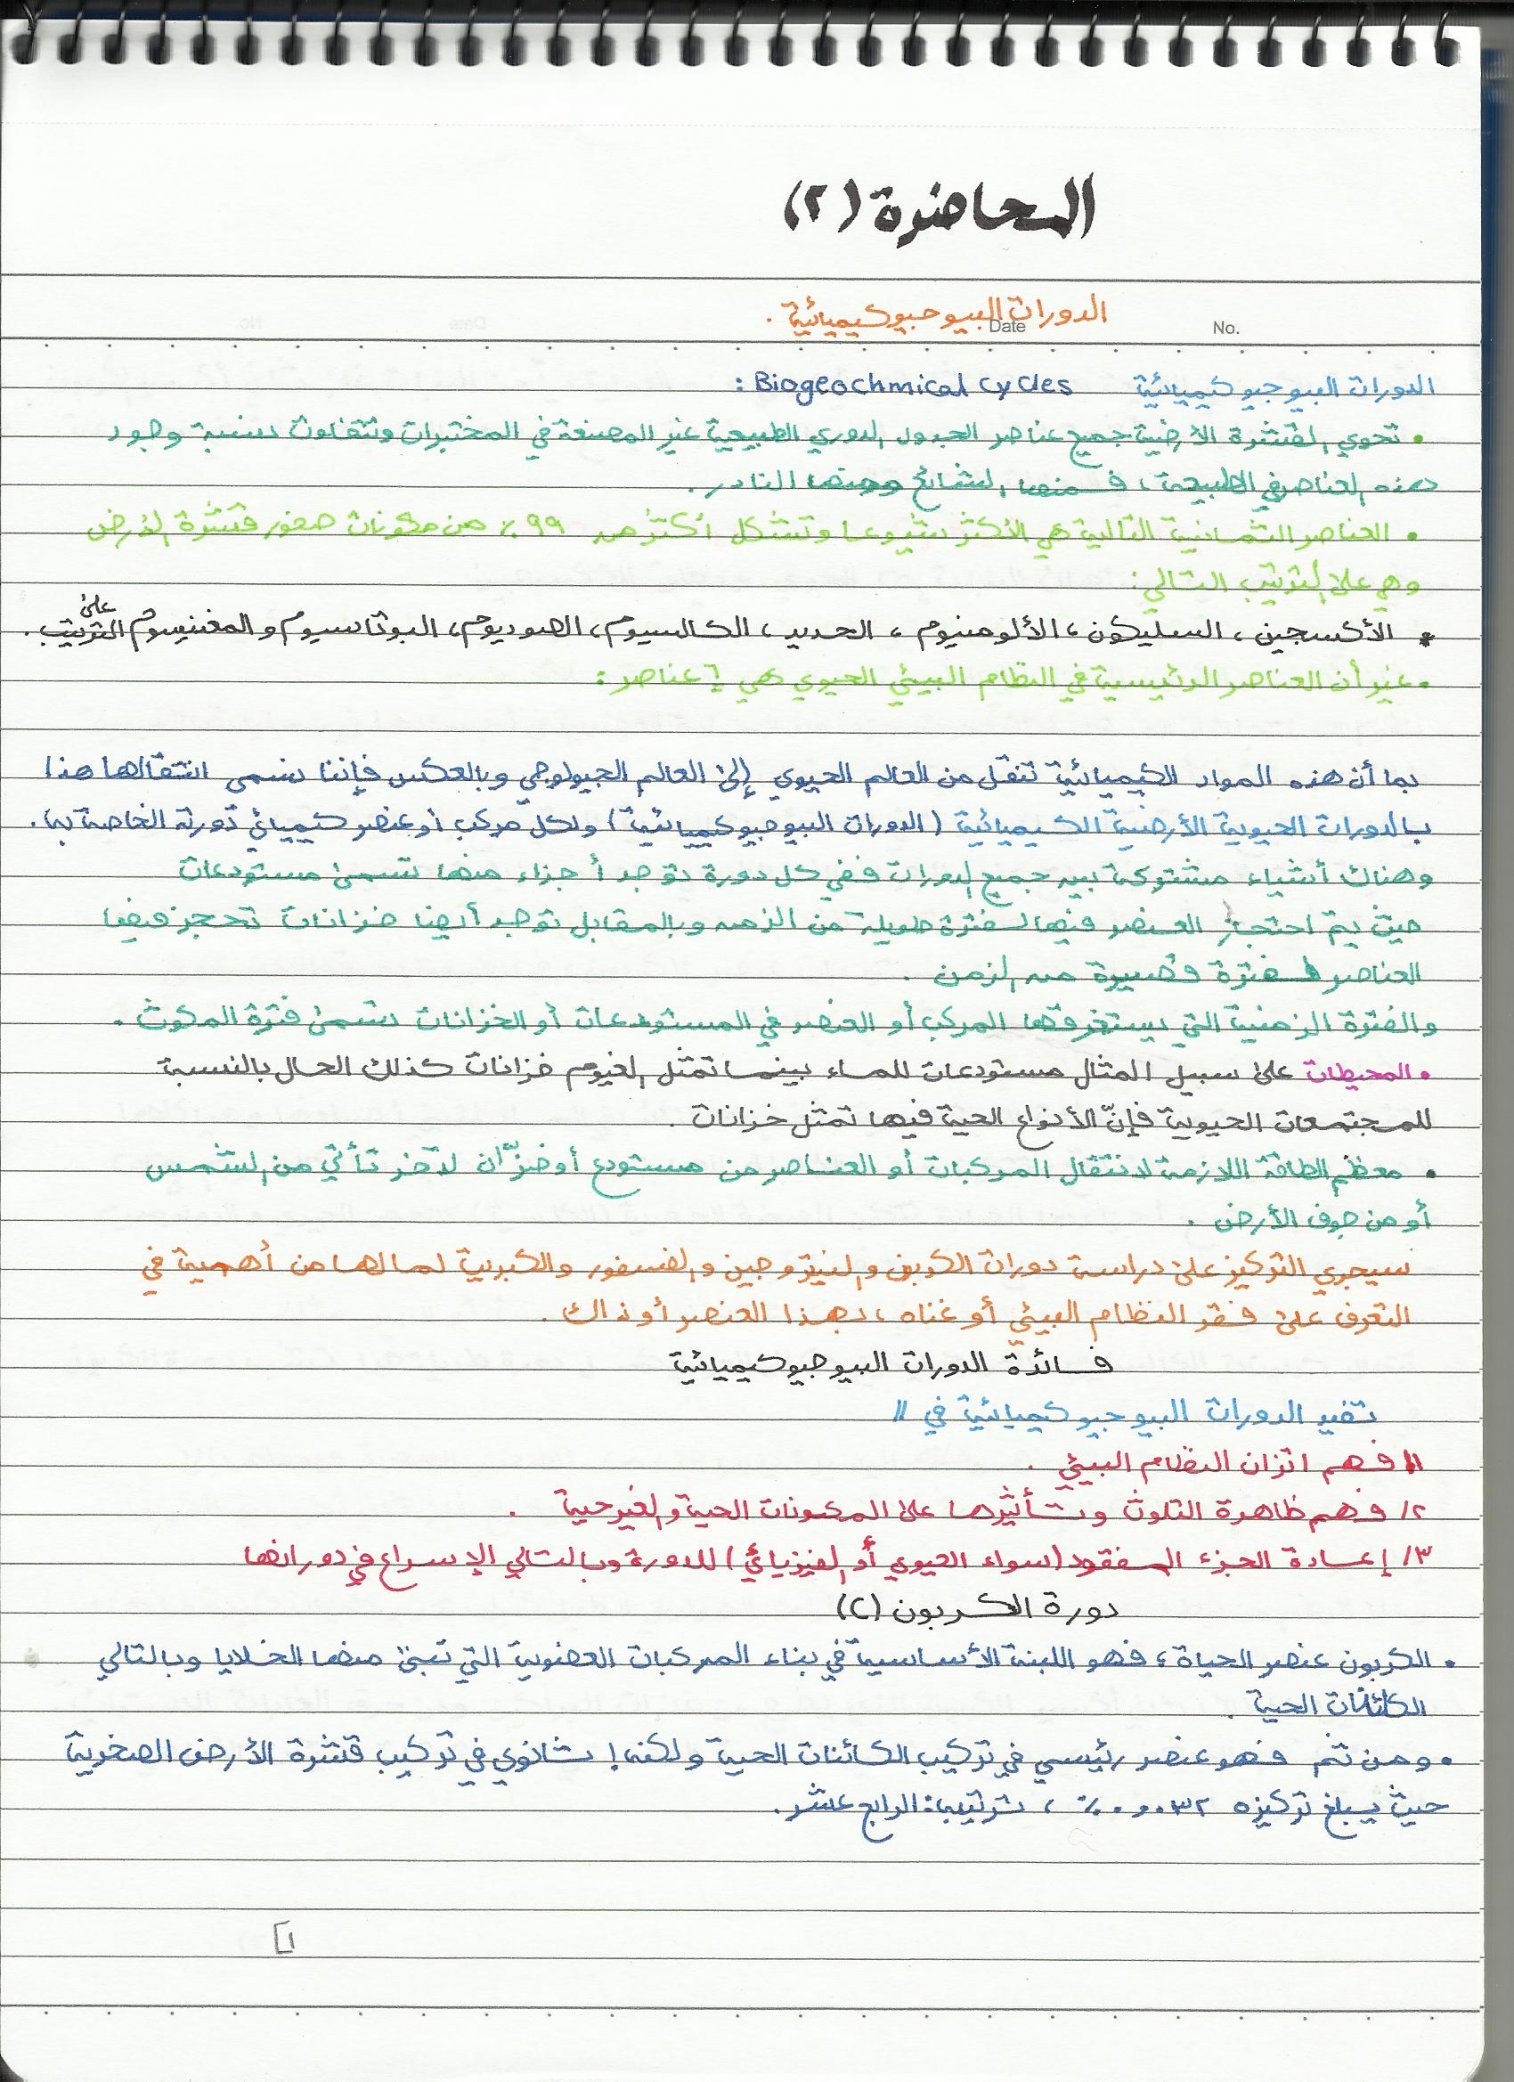 المحاضرة (٢)
الدورات البيوجيوكيميائية .
Date
No.
الدورات البيوجيوكيميائية Biogeochmical cycles :
• تحوي القشرة الأرضية جميع عناصر الجدول الدوري الطبيعية غير المصنعة في المختبرات وتتفاوت نسبة وجود
هذه العناصر في الطبيعة ، فمنها الشائع ومنها النادر .
• العناصر الثمانية التالية هي الأكثر شيوعا وتشكل أكثر من ٩٩ ٪ من مكونات صخور قشرة الأرض
وهي على الترتيب التالي :
• الأكسجين ، السليكون ، الألومنيوم ، الحديد ، الكالسيوم ، الصوديوم ، البوتاسيوم و المغنيسيوم على الترتيب .
• غير أن العناصر الرئيسية في النظام البيئي الحيوي هي ٤ عناصر :
بما أن هذه المواد الكيميائية تنقل من العالم الحيوي إلى العالم الجيولوجي وبالعكس فإننا نسمي انتقالها هذا
بالدورات الحيوية الأرضية الكيميائية (الدورات البيوجيوكيميائية) ولكل مركب أو عنصر كيميائي دورته الخاصة بها .
وهناك أشياء مشتركة بين جميع الدورات ففي كل دورة توجد أجزاء منها تسمى مستودعات
حيث يتم احتجاز العنصر فيها لفترة طويلة من الزمن وبالمقابل توجد أيضا خزانات تحجز فيها
العناصر لفترة قصيرة من الزمن .
والفترة الزمنية التي يستغرقها المركب أو العنصر في المستودعات أو الخزانات تسمى فترة المكوث .
• المحيطات على سبيل المثال مستودعات للماء بينما تمثل الغيوم خزانات كذلك الحال بالنسبة
للمجتمعات الحيوية فإنّ الأنواع الحية فيها تمثل خزانات .
• معظم الطاقة اللازمة لانتقال المركبات أو العناصر من مستودع أو خزّان لآخر تأتي من الشمس
أو من جوف الأرض .
سيجري التركيز على دراسة دورات الكربون والنيتروجين والفسفور والكبريت لما لها من أهمية في
التعرف على فقر النظام البيئي أو غناه ، بهذا العنصر أو ذاك .
فائدة الدورات البيوجيوكيميائية
تفيد الدورات البيوجيوكيميائية في //
١/ فهم اتزان النظام البيئي .
٢/ فهم ظاهرة التلوث وتأثيرها على المكونات الحية والغير حية .
٣/ إعادة الجزء المفقود (سواء الحيوي أو الفيزيائي) للدورة وبالتالي الإسراع في دورانها
دورة الكربون (C)
• الكربون عنصر الحياة ، فهو اللبنة الأساسية في بناء المركبات العضوية التي تبنى منها الخلايا وبالتالي
الكائنات الحية .
• ومن ثم فهو عنصر رئيسي في تركيب الكائنات الحية ولكنه ثانوي في تركيب قشرة الأرض الصخرية
حيث يبلغ تركيزه ٠٫٠٣٢ ٪ ، ترتيبه الرابع عشر .
١